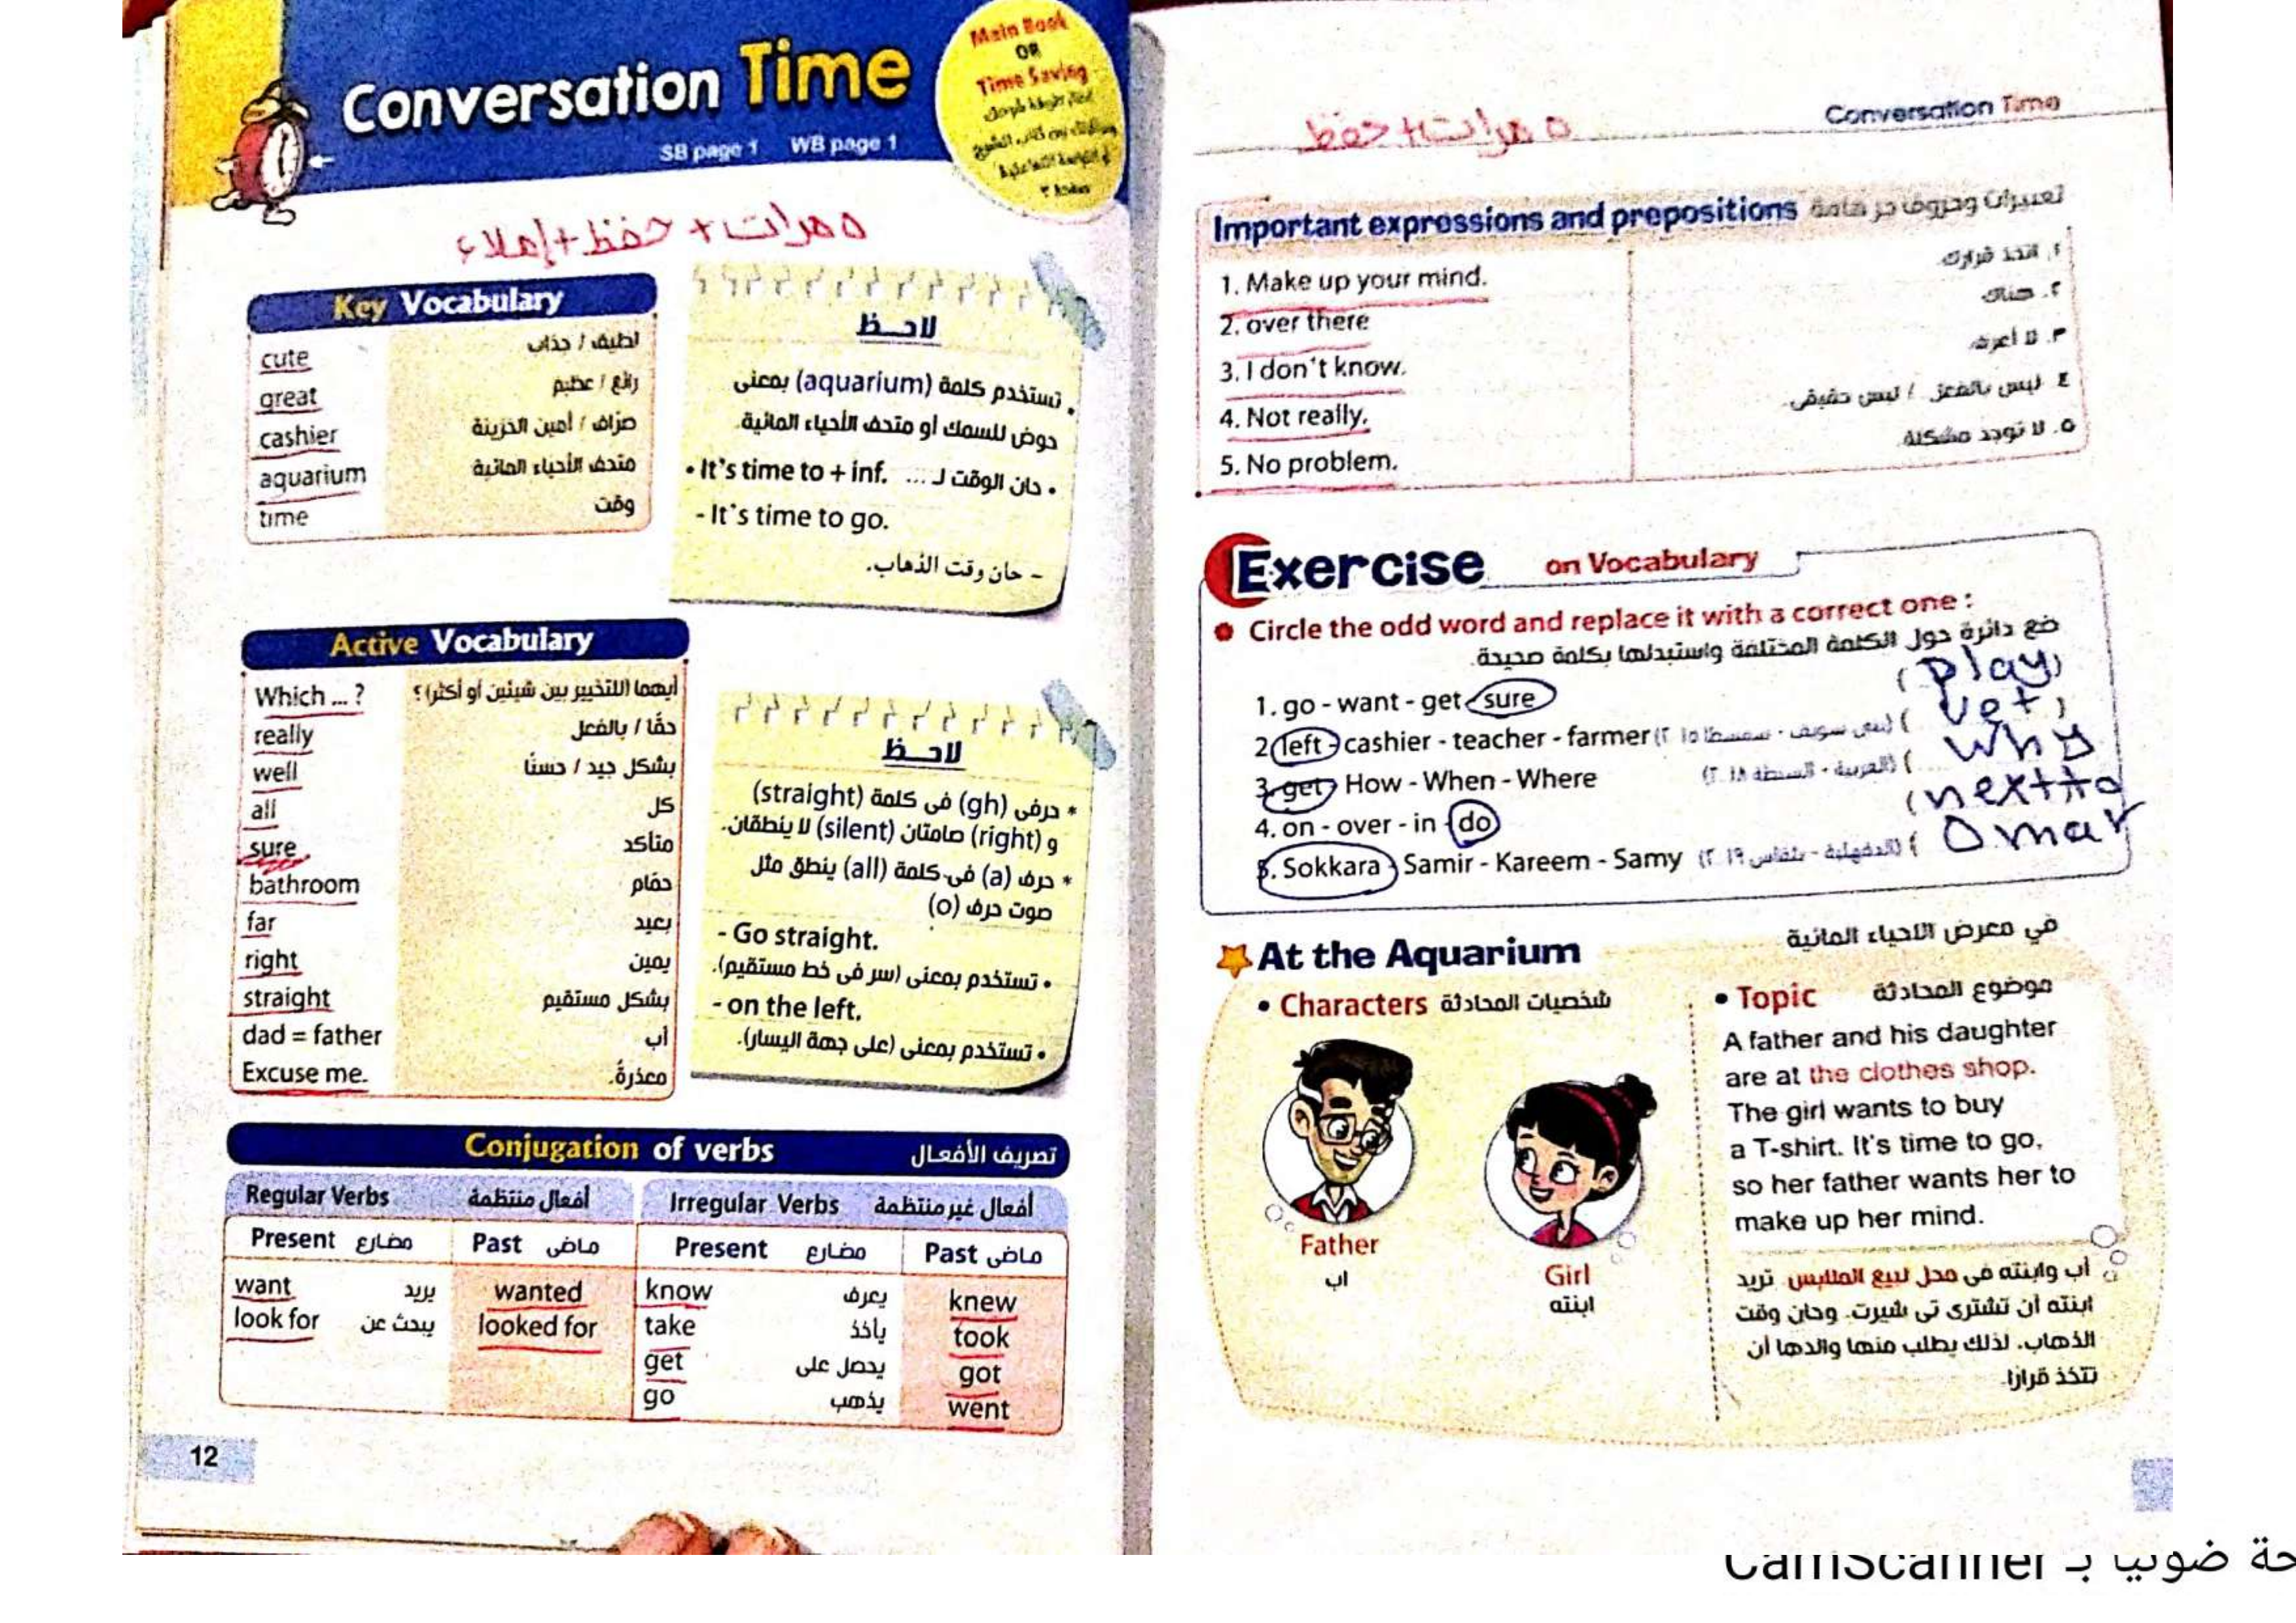 Conversation Time
SB page 1 WB page 1
Main Book
OR
Time Saving
٥ مرات + حفظ + إملاء
Key Vocabulary
cute لطيف / جذاب
great رائع / عظيم
cashier صرّاف / أمين الخزينة
aquarium متحف الأحياء المائية
time وقت
لاحظ
• تستخدم كلمة (aquarium) بمعنى
حوض للسمك أو متحف الأحياء المائية
• It's time to + inf. ... حان الوقت لـ •
- It's time to go.
- حان وقت الذهاب.
Active Vocabulary
Which ... ? أيهما (للتخيير بين شيئين أو أكثر) ؟
really حقًا / بالفعل
well بشكل جيد / حسنًا
all كل
sure متأكد
bathroom حمّام
far بعيد
right يمين
straight بشكل مستقيم
dad = father أب
Excuse me. معذرةً.
لاحظ
* حرفى (gh) فى كلمة (straight)
و (right) صامتان (silent) لا ينطقان.
* حرف (a) فى كلمة (all) ينطق مثل
صوت حرف (o)
- Go straight.
• تستخدم بمعنى (سر فى خط مستقيم).
- on the left.
• تستخدم بمعنى (على جهة اليسار).
Conjugation of verbs تصريف الأفعال
Regular Verbs أفعال منتظمة Irregular Verbs أفعال غير منتظمة
Present مضارع Past ماضى Present مضارع Past ماضى
want يريد wanted know يعرف knew
look for يبحث عن looked for take يأخذ took
get يحصل على got
go يذهب went
12
Conversation Time
٥ مرات + حفظ
Important expressions and prepositions تعبيرات وحروف جر هامة
1. Make up your mind. ١. اتخذ قرارك.
2. over there ٢. هناك
3. I don't know. ٣. لا أعرف.
4. Not really. ٤. ليس بالفعل / ليس حقيقى.
5. No problem. ٥. لا توجد مشكلة.
Exercise on Vocabulary
Circle the odd word and replace it with a correct one :
ضع دائرة حول الكلمة المختلفة واستبدلها بكلمة صحيحة.
1. go - want - get - sure (play)
2. left - cashier - teacher - farmer (بنى سويف - سمسطا ٢٠١٥) (vet)
3. get - How - When - Where (الغربية - السنطة ٢٠١٨) (why
4. on - over - in - do (next to
5. Sokkara - Samir - Kareem - Samy (الدقهلية - بلقاس ٢٠١٩) (Omar
At the Aquarium في معرض الأحياء المائية
• Characters شخصيات المحادثة
Father
أب
Girl
ابنته
• Topic موضوع المحادثة
A father and his daughter
are at the clothes shop.
The girl wants to buy
a T-shirt. It's time to go,
so her father wants her to
make up her mind.
أب وابنته فى محل لبيع الملابس تريد
ابنته أن تشترى تى شيرت. وحان وقت
الذهاب. لذلك يطلب منها والدها أن
تتخذ قرارًا.
حة ضوئيا بـ CamScanner